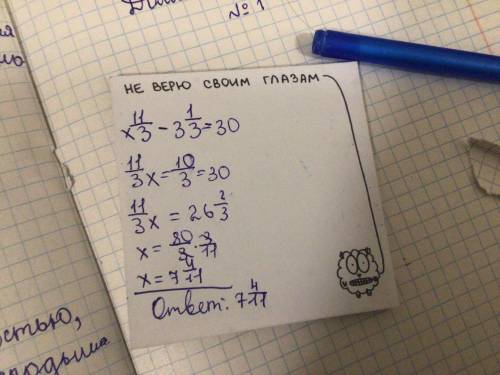 № 1
НЕ ВЕРЮ СВОИМ ГЛАЗАМ
x 11/3 - 3 1/3 = 30
11/3 x = 10/3 = 30
11/3 x = 26 2/3
x = 80/3 · 3/11
x = 7 4/11
Ответ: 7 4/11
остью,